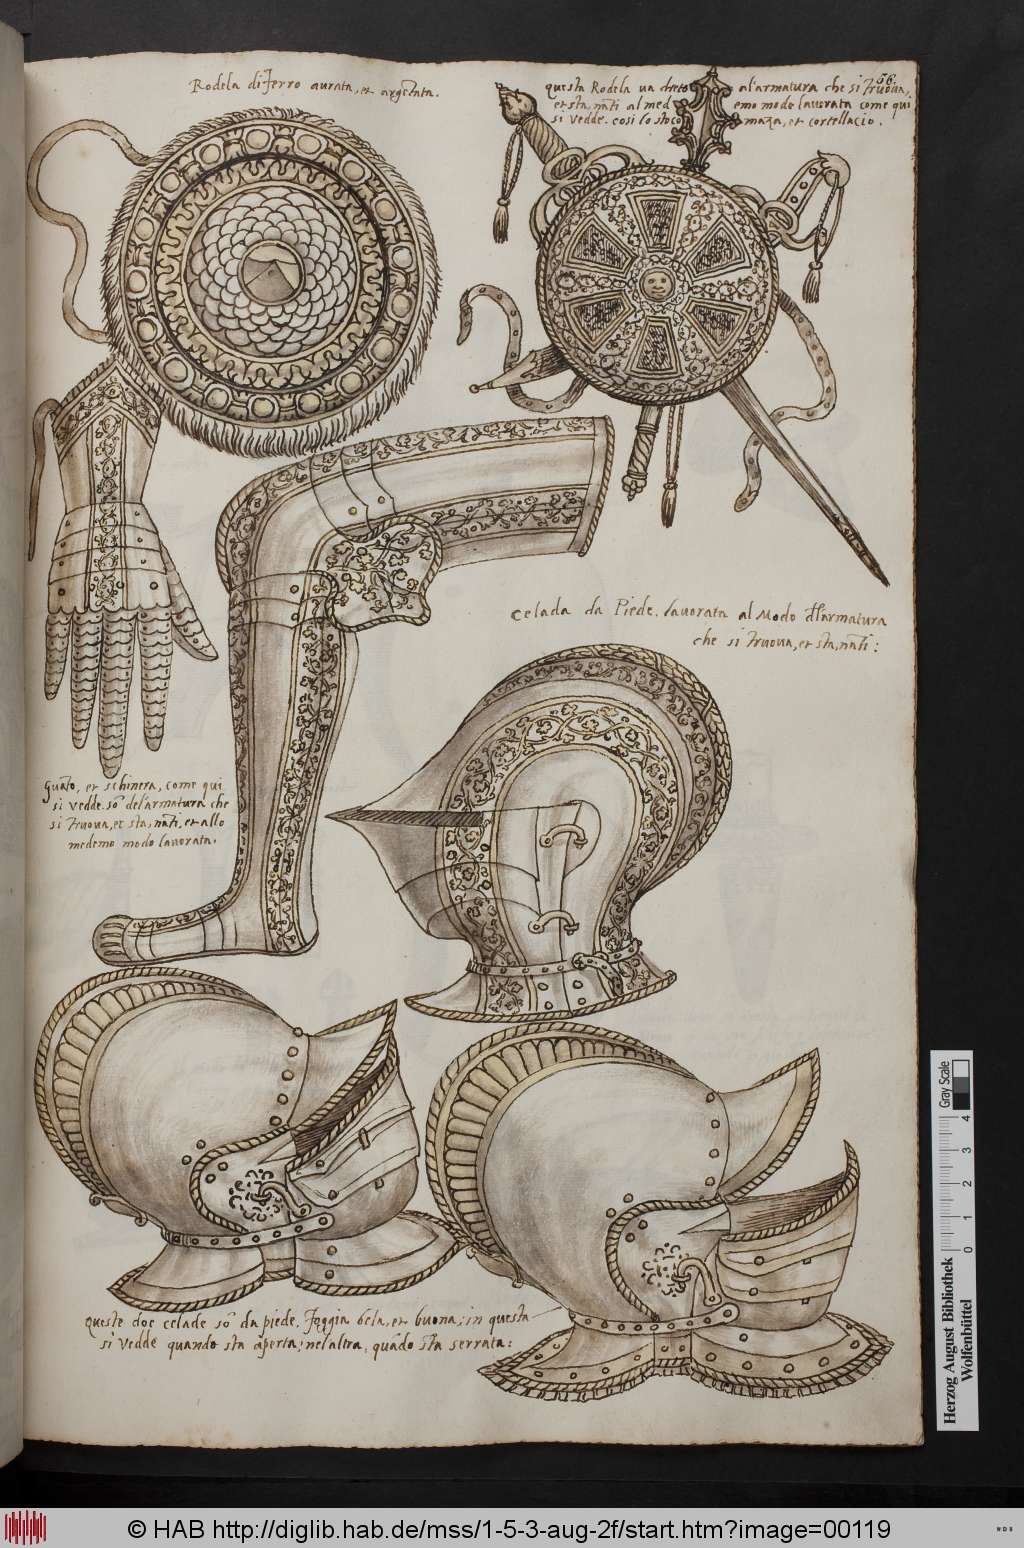 66.
Rodela di ferro aurata, et argētata.
questa Rodela va dreto al'armatura che si truova,
et sta, nāti al med emo mode lavorata come qui
si vedde. cosi lo stoco maza, et cortellacio.
Celada da Piede. lavorata al Modo dl'armatura
che si truova, et sta, nāti:
Guāto, et schinera, come qui
si vedde. sō del'armatura che
si truova, et sta, nāti, et allo
medemo modo lavorata.
Queste doe celade sō da piede. foggia bela, et buona; in questa
si vedde quando sta aperta; nel altra, quādo sta serrata:
Gray Scale
0 1 2 3 4
Herzog August Bibliothek
Wolfenbüttel
© HAB http://diglib.hab.de/mss/1-5-3-aug-2f/start.htm?image=00119